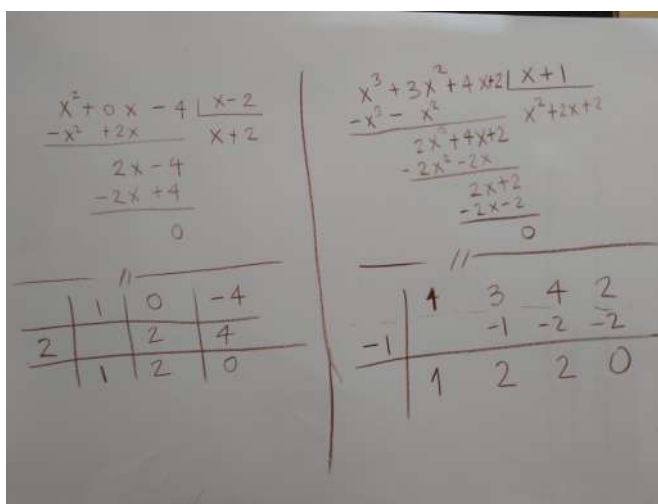 x² + 0x - 4 | x - 2
-x² + 2x x + 2
2x - 4
-2x + 4
0
//
1 0 -4
2 2 4
1 2 0
x³ + 3x² + 4x + 2 | x + 1
-x³ - x² x² + 2x + 2
2x² + 4x + 2
-2x² - 2x
2x + 2
-2x - 2
0
//
1 3 4 2
-1 -1 -2 -2
1 2 2 0